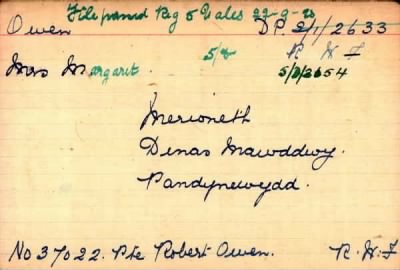 File passed Reg 5 Wales 22-9-20
Owen DP 2/1/2633
5/8 R H F
Mrs Margaret 5/D/2654
Merioneth
Dinas Mawddwy.
Pandynewydd.
No 37022. Pte Robert Owen. R.H.F